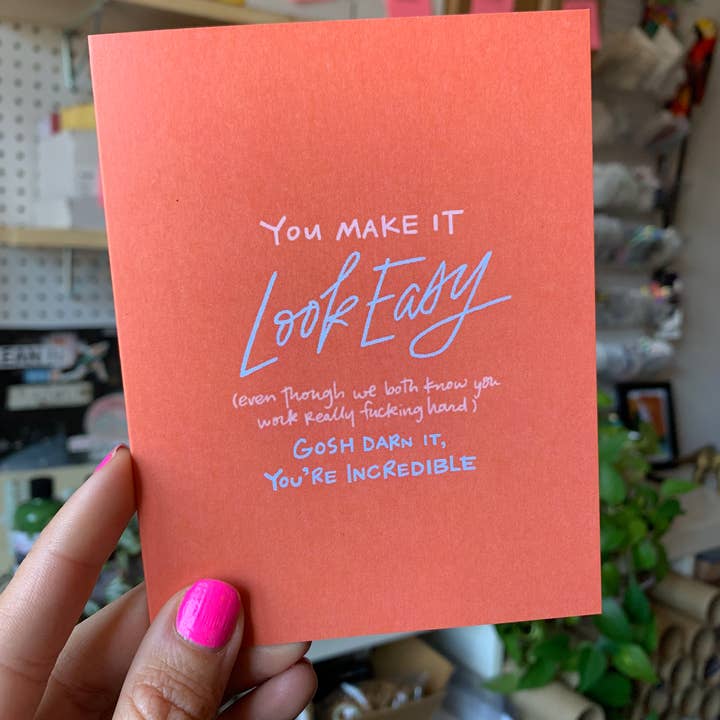 You make it
Look Easy
(even though we both know you
work really fucking hard)
Gosh darn it,
You're incredible